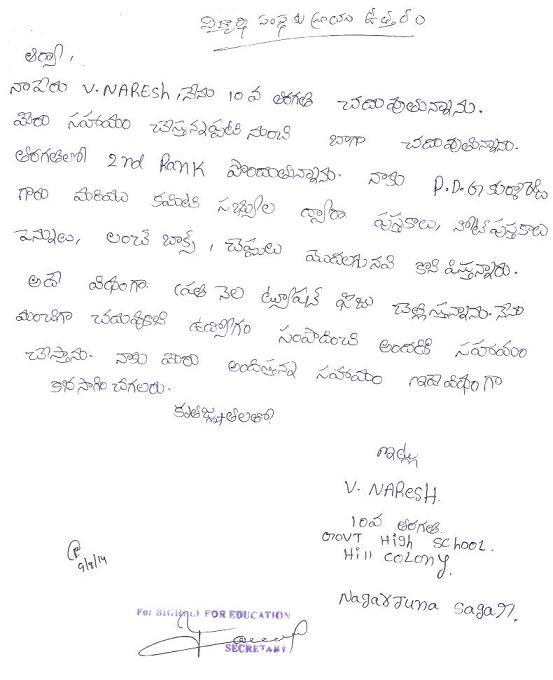 విద్యార్థి సంస్థకు వ్రాయు ఉత్తరం
ఆర్యా,
నా పేరు V. NARESH, నేను 10 వ తరగతి చదువుతున్నాను.
మీరు సహాయం చేస్తున్నప్పటి నుంచి బాగా చదువుతున్నాను.
తరగతిలో 2nd Rank పొందుతున్నాను. నాకు P.D.
గారు మరియు కమిటి సభ్యుల ద్వారా పుస్తకాలు, నోట్ పుస్తకాలు
పెన్నులు, లంచ్ బాక్స్, చెప్పులు మొదలగునవి కొని పిస్తున్నారు.
అదే విధంగా ప్రతి నెల ట్యూషన్ ఫీజు చెల్లిస్తున్నాను. నేను
మంచిగా చదువుకొని ఉద్యోగం సంపాదించి అందరికి సహాయం
చేస్తాను. నాకు మీరు అందిస్తున్న సహాయం ఇదే విధంగా
కొనసాగించగలరు.
కృతజ్ఞతలతో
ఇట్లు
V. NARESH.
10వ తరగతి.
GOVT HIGH SCHOOL.
Hill COLONY.
Nagarjuna Sagar.
9/8/14
For BIGHELP FOR EDUCATION
SECRETARY